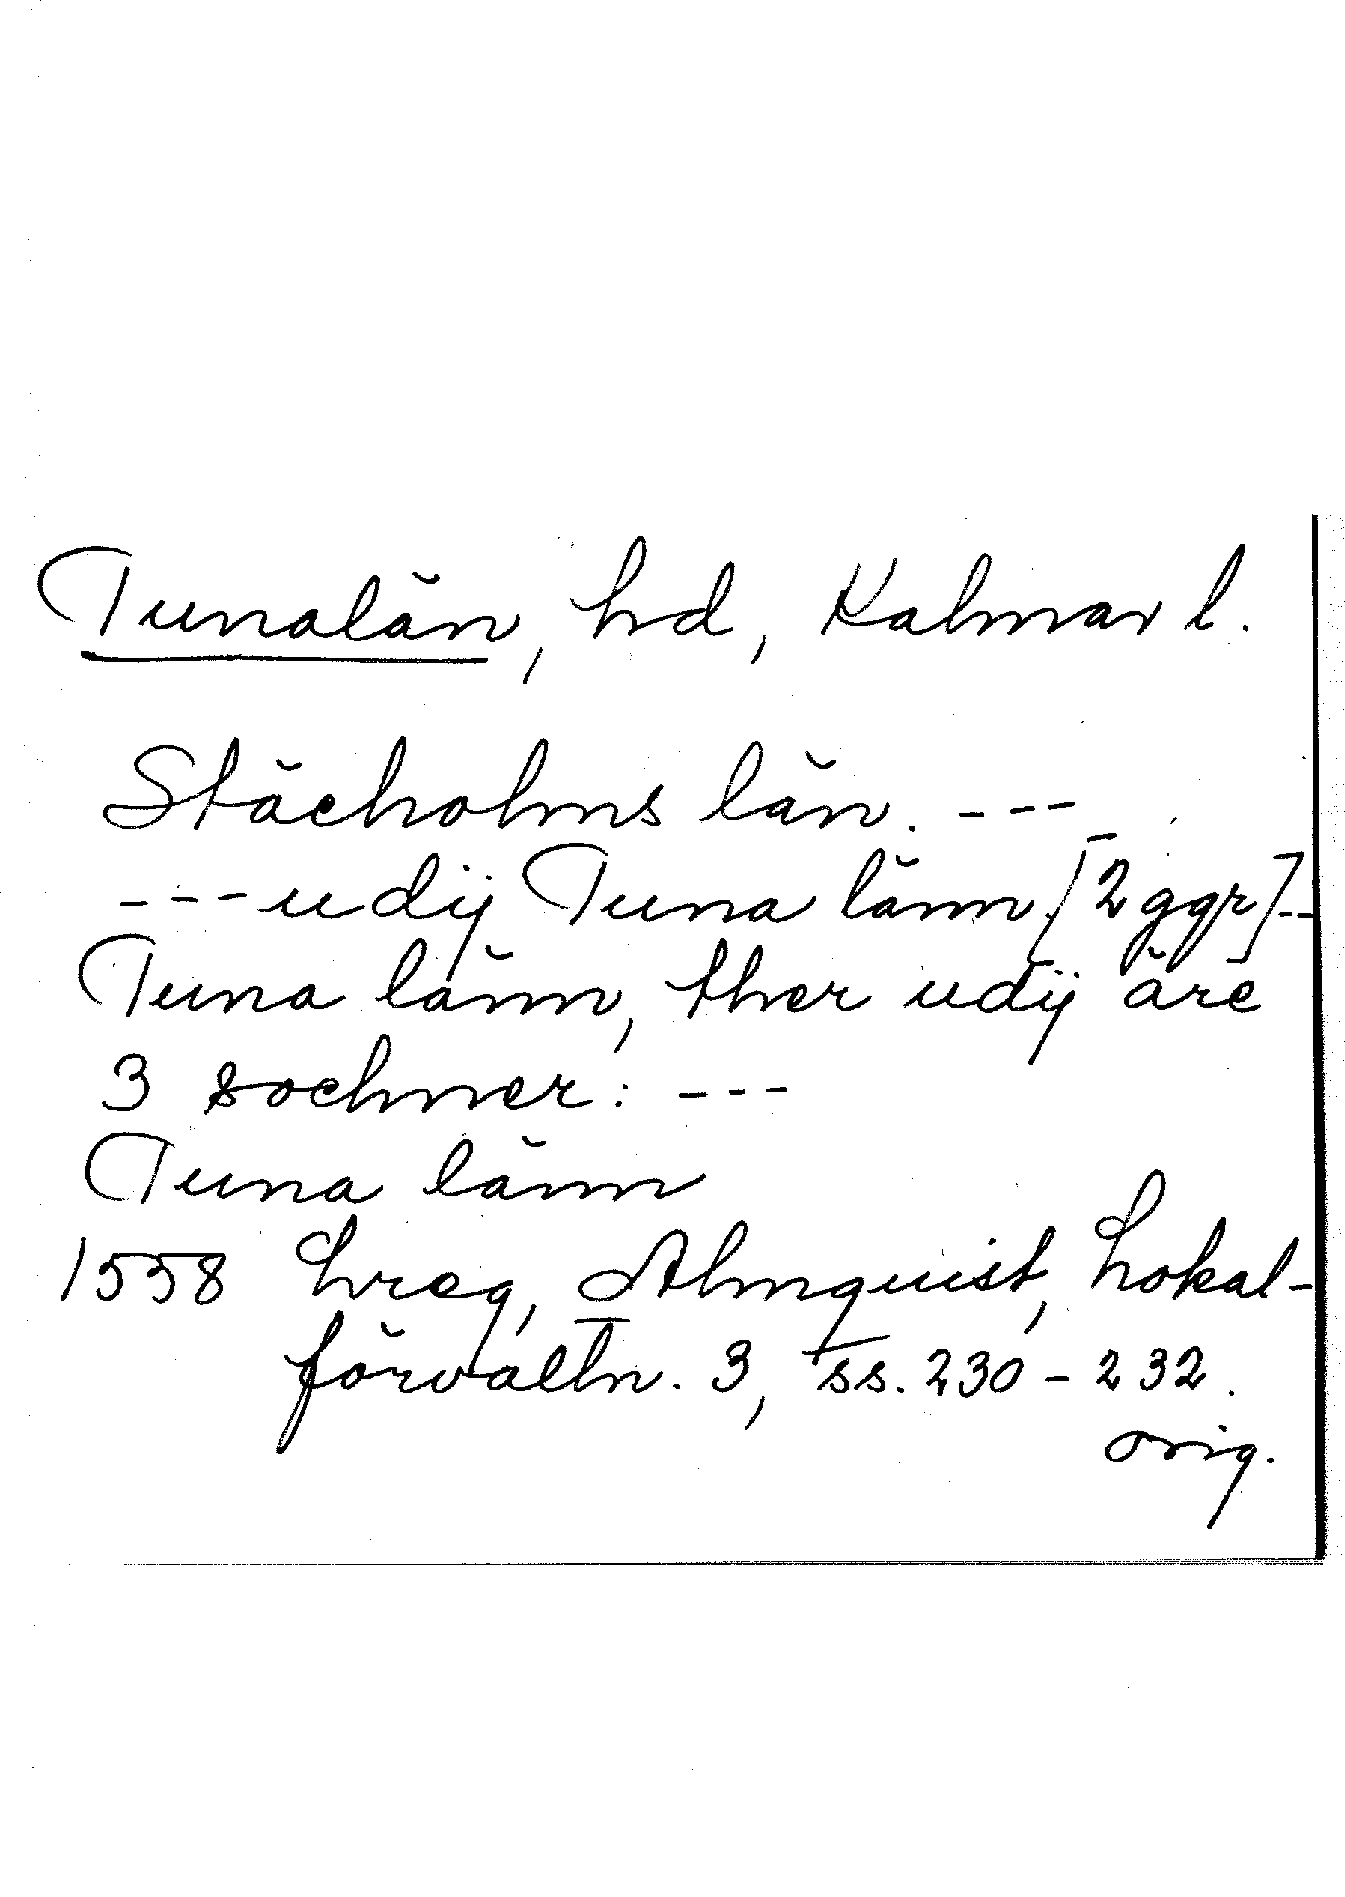 Tunalän, hd, Kalmar l.
Stächolms län. ---
--- udij Tuna länn [2 ggr] --
Tuna länn, ther udij äre
3 sochner: ---
Tuna länn
1558 hreg, Almquist, Lokal-
förvaltn. 3, ss. 230-232.
orig.